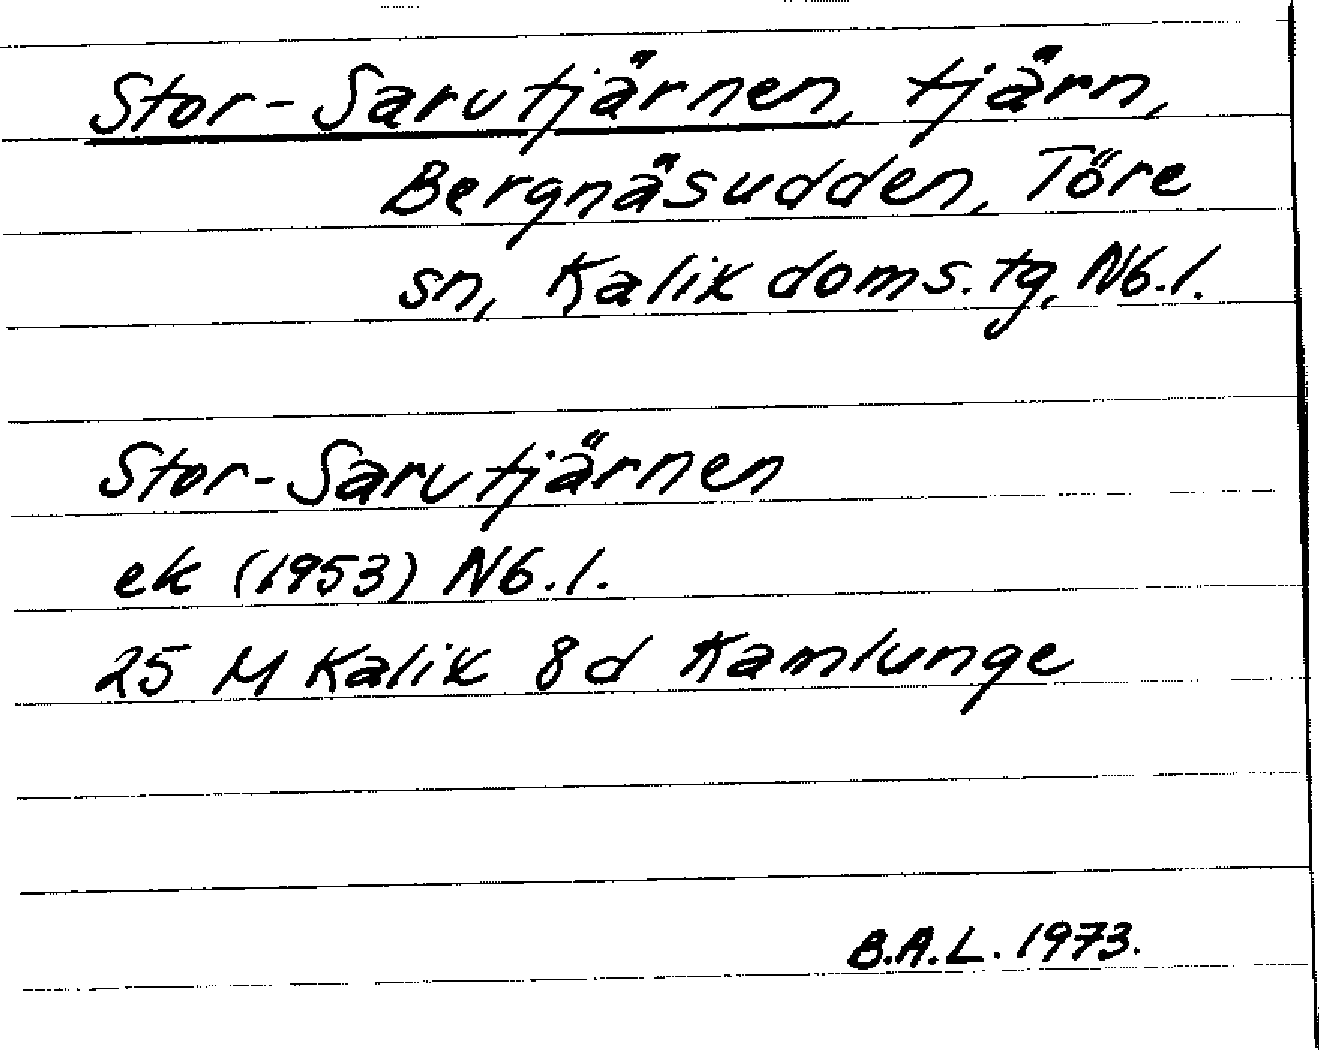 Stor-Sarutjärnen, tjärn,
Bergnäsudden, Töre
sn, Kalix doms. tg, Nb.l.
Stor-Sarutjärnen
ek (1953) Nb.l.
25 M Kalix 8d Kamlunge
B.A.L. 1973.